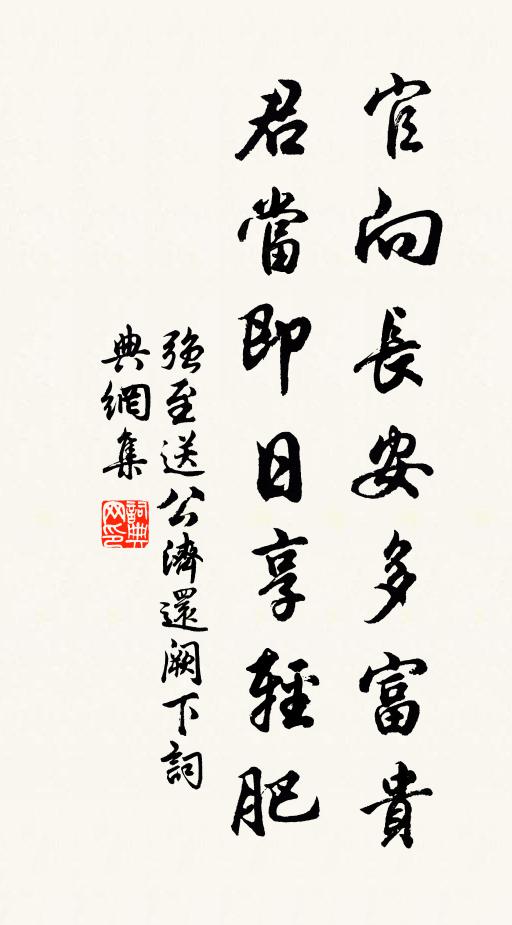 官向長安多富貴
君當即日享輕肥
強至送公濟還闕下詞
典網集
詞典
网印